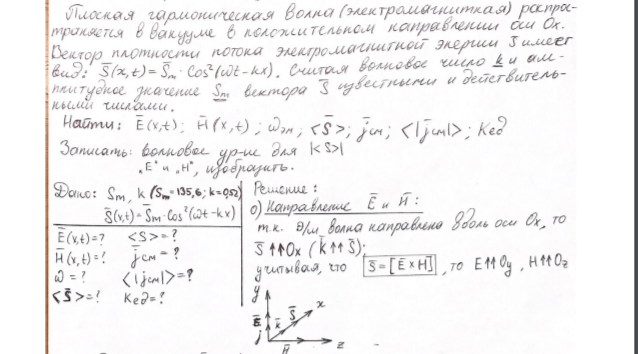 Плоская гармоническая волна (электромагнитная) распро-
траняется в вакууме в положительном направлении оси Ox.
Вектор плотности потока электромагнитной энергии S̄ имеет
вид: S̄(x,t) = S̄m · cos²(ωt - kx). Считая волновое число k и ам-
плитудное значение Sm вектора S̄ известными и действитель-
ными числами.
Найти: Ē(x,t); H̄(x,t); ωэм; <S̄>; j̄см; <|j̄см|>; Kед
Записать: волновое ур-ие для |<S>|
„E" и „H", изобразить.
Дано: Sm, k (Sm=135,6; k=0,52)
S̄(x,t) = S̄m · cos²(ωt - kx)
Ē(x,t)=? <S>=?
H̄(x,t)=? j̄см=?
ω=? <|j̄см|>=?
<S̄>=? Kед=?
Решение:
0) Направление Ē и H̄:
т.к. э/м волна направлена вдоль оси Ox, то
S̄↑↑Ox (k̄↑↑S̄);
учитывая, что S̄=[Ē×H̄], то E↑↑Oy, H↑↑Oz
y
x
S̄
Ē
k̄
j
H̄
z